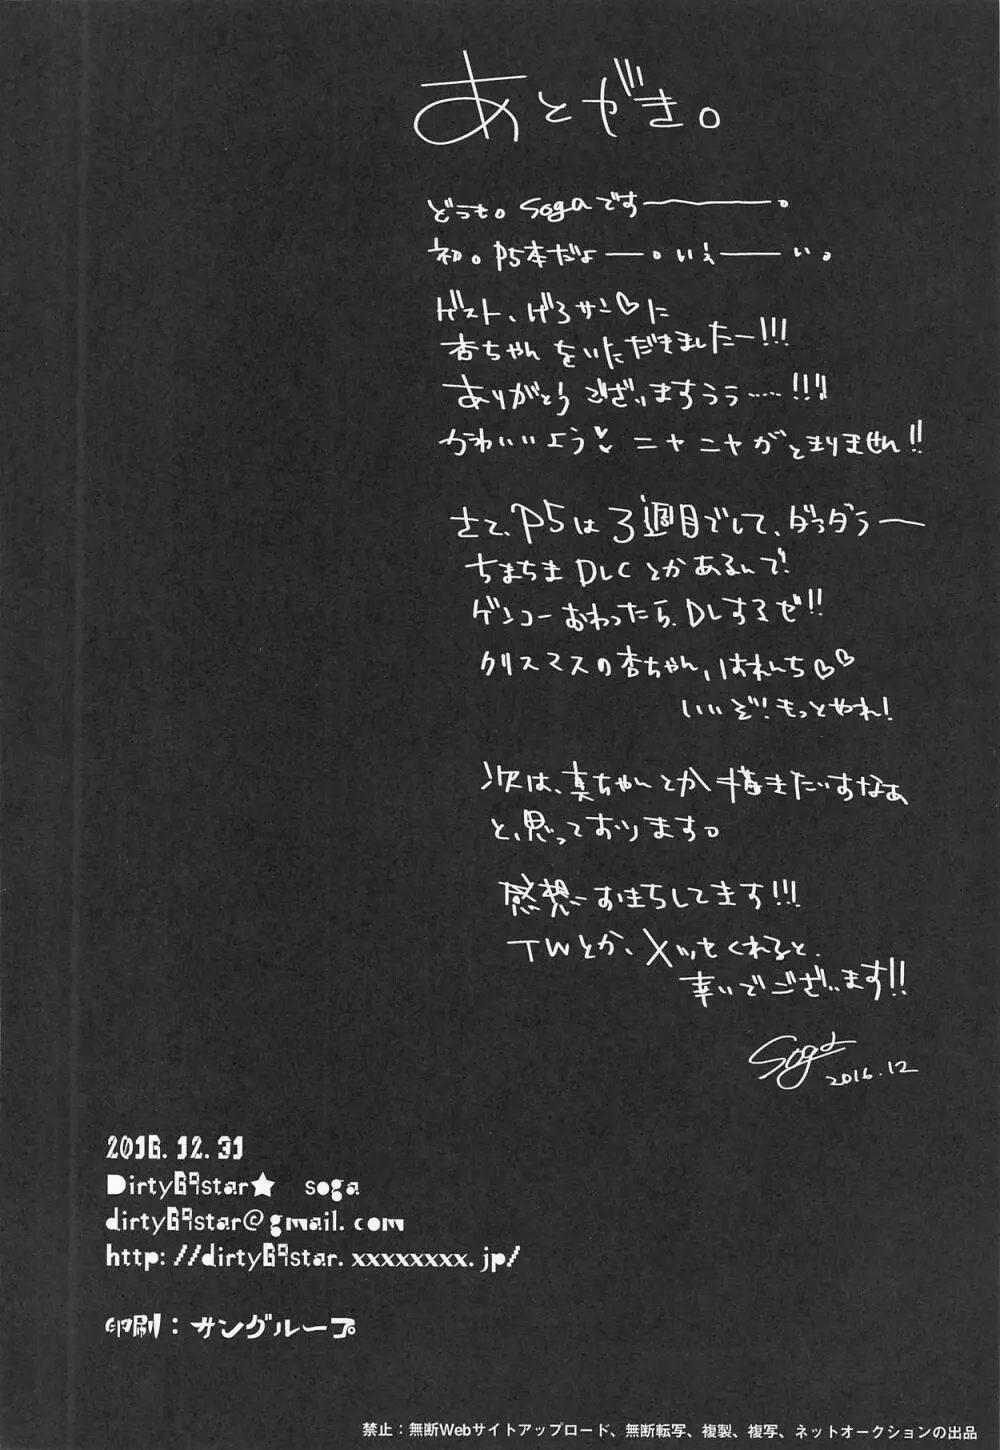 あとがき。
どうも。sogaですーーー。
初。P5本だよーー。いぇーーい。
ゲスト、げろサン♡に
杏ちゃんをいただきましたー!!!
ありがとうございますうう……!!!
かわいいよう♡ニヤニヤがとまりません!!
さて、P5は3週目でして、ダラダラー
ちまちまDLCとかあるんで!
ゲンコーおわったら、DLするぜ!!
クリスマスの杏ちゃん、はれんち♡♡
いいぞ!もっとやれ!
次は、真ちゃんとか描きたいすなあ
と、思っております。
感想おまちしてます!!!
TWとか、メッセくれると、
幸いでございます!!
Soga
2016.12
2016.12.31
Dirty69star★ soga
dirty69star@gmail.com
http://dirty69star.xxxxxxxx.jp/
印刷：サングループ
禁止：無断Webサイトアップロード、無断転写、複製、複写、ネットオークションの出品